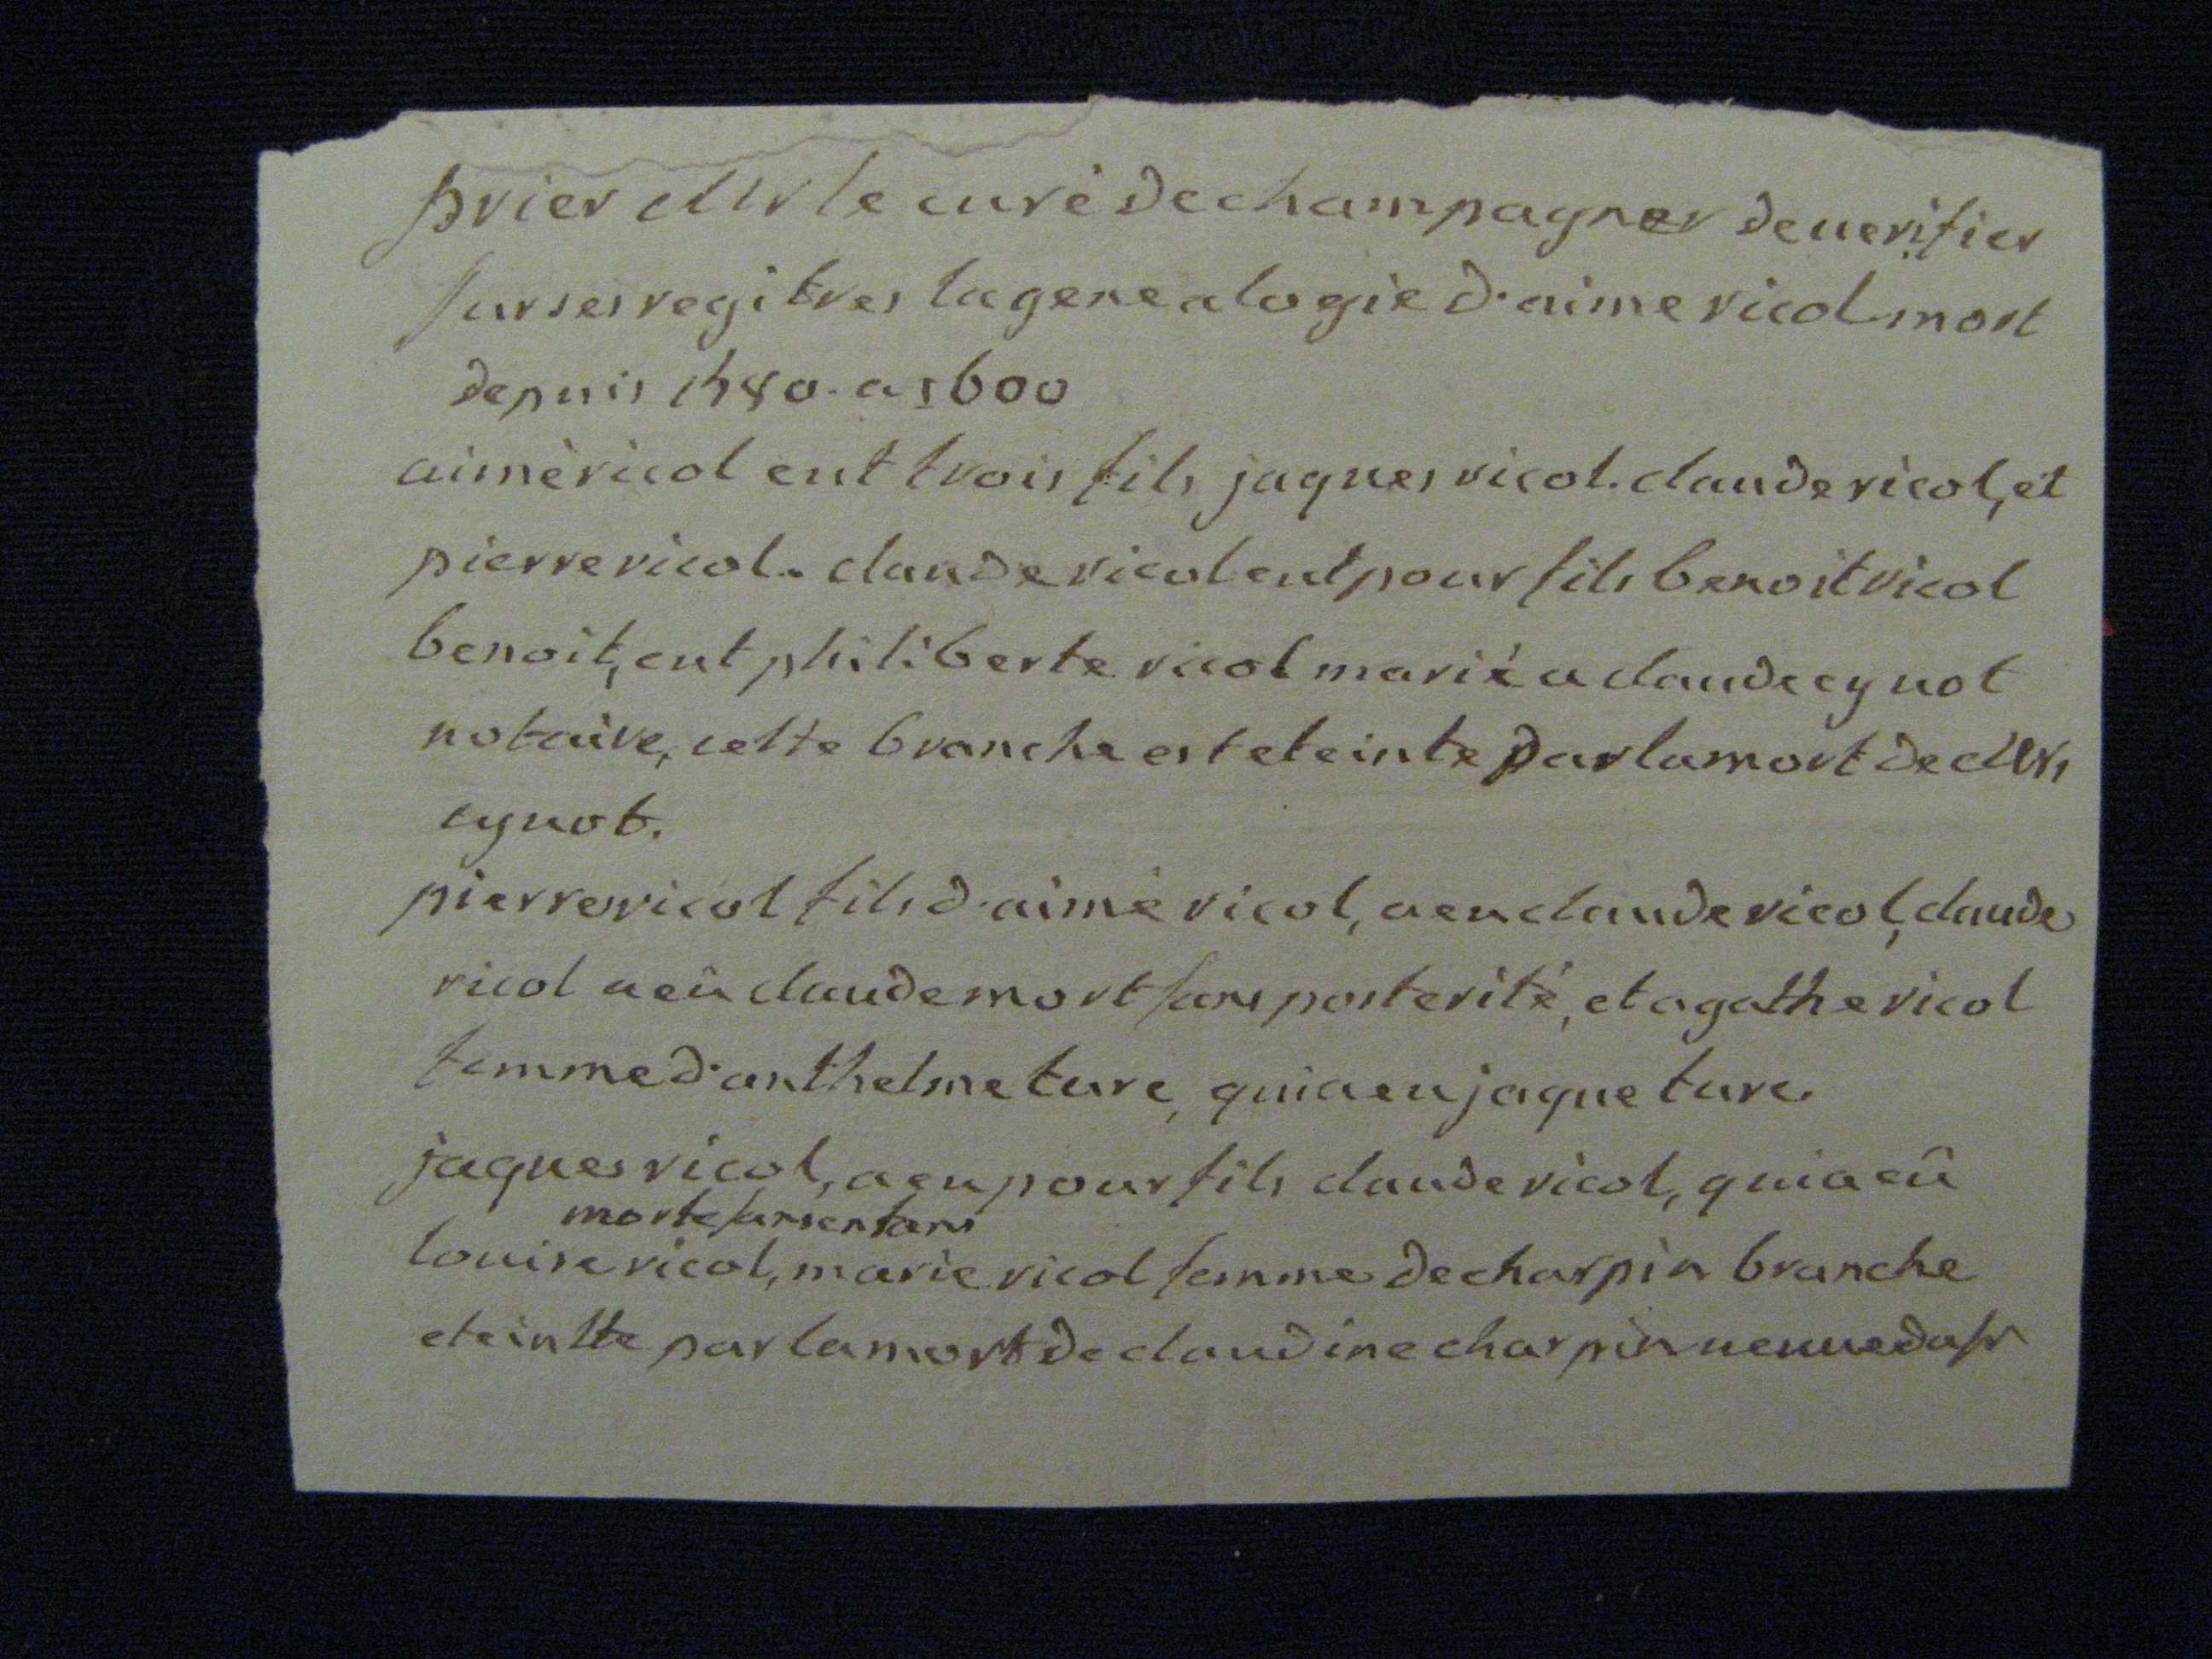 prier Mr le curé de champagner de uerifier
sur ses regitres la genealogie d'aime ricol mort
depuis 1580. a 1600
aimé ricol eut trois fils jaques ricol. claude ricol, et
pierre ricol. claude ricol eut pour fils benoit ricol
benoit, eut philiberte ricol marié a claude cynot
notaire, cette branche est eteinte par la mort de Mrs
cynot.
pierre ricol fils d'aimé ricol, a eu claude ricol, claude
ricol a eû claude mort sans posterité, et agathe ricol
femme d'anthelme ture, qui a eu jaque ture.
jaques ricol, a eu pour fils claude ricol, qui a eû
morte sans enfans
louise ricol, marie ricol femme de charpin branche
eteintte par la mort de claudine charpin ueuue